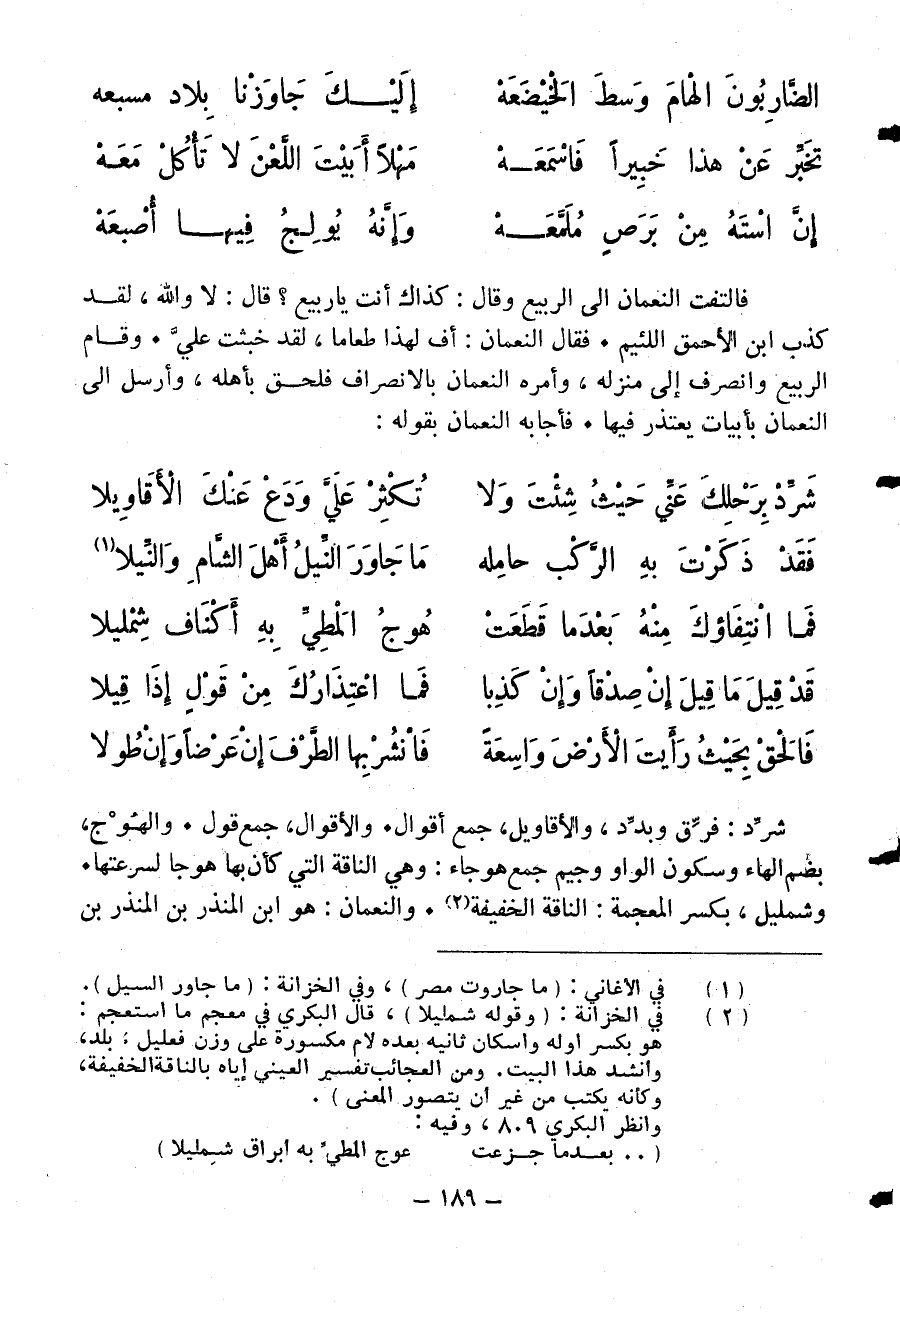 الضَّارِبُونَ الْهَامَ وَسطَ الْخَيْضَعَهْ إِلَيْــكَ جَاوَزْنَا بِلاد مسبعه
تخَبَّرْ عَنْ هذا خَبِيراً فَاسْمَعَــهْ مَهْلاً أَبَيْتَ اللَّعْنَ لا تَأْكُلْ مَعَـهْ
إنَّ اسْتَهُ مِنْ بَرَصٍ مُلَمَّعَــهْ وَإِنَّهُ يُولِـجُ فِيهــا أُصْبعَهْ
فالتفت النعمان الى الربيع وقال : كذاك أنت ياربيع ؟ قال : لا والله ، لقــد
كذب ابن الأحمق اللئيم • فقال النعمان : أف لهذا طعاما ، لقد خبثت عليَّ • وقــام
الربيع وانصرف إلى منزله ، وأمره النعمان بالانصراف فلحــق بأهله ، وأرسل الى
النعمان بأبيات يعتذر فيها • فأجابه النعمان بقوله :
شَرِّدْ بِرَحْلِكَ عَنِّي حَيْثُ شِئْتَ وَلا تُكْثِرْ عَلَيَّ وَدَعْ عَنْكَ الْأَقَاوِيلا
فَقَدْ ذَكَرْتَ بِهِ الرَّكْب حامِله مَا جَاوَرَ النِّيلُ أَهْلَ الشَّامِ وَالنِّيلا(١)
فَمـا انْتِفَاؤكَ مِنْهُ بَعْدَما قَطَعَتْ هُوجُ الْمَطِيِّ بِهِ أَكْنَاف شِمْلِيلا
قَدْ قِيلَ مَا قِيلَ إنْ صِدْقاً وَإنْ كَذِبا فَمـا اعْتِذَارُكَ مِنْ قَوْلٍ إذَا قِيلا
فَالْحَقْ بِحَيْثُ رَأَيتَ الْأَرْضَ وَاسِعَةً فَانْشُرْ بِها الطَّرْفَ إنْ عَرْضاً وَإنْ طُولا
شرِّد : فرِّق وبدِّد ، والأقاويل، جمع أقوال• والأقوال، جمع قول • والهُوْج،
بضم الهاء وسكون الواو وجيم جمع هوجاء : وهي الناقة التي كأن بها هوجا لسرعتها•
وشمليل ، بكسر المعجمة : الناقة الخفيفة(٢) • والنعمان : هو ابن المنذر بن المنذر بن
(١) في الأغاني : ( ما جاروت مصر ) ، وفي الخزانة : ( ما جاور السيل ).
(٢) في الخزانة : ( وقوله شمليلا ) ، قال البكري في معجم ما استعجم :
هو بكسر أوله واسكان ثانيه بعده لام مكسورة على وزن فعليل ؛ بلد،
وأنشد هذا البيت. ومن العجائب تفسير العيني إياه بالناقة الخفيفة،
وكأنه يكتب من غير أن يتصور المعنى ) .
وانظر البكري ٨٠٩ ، وفيه :
( .. بعــدما جــزعت عوج المطيِّ به أبراق شـمليلا )
– ١٨٩ –